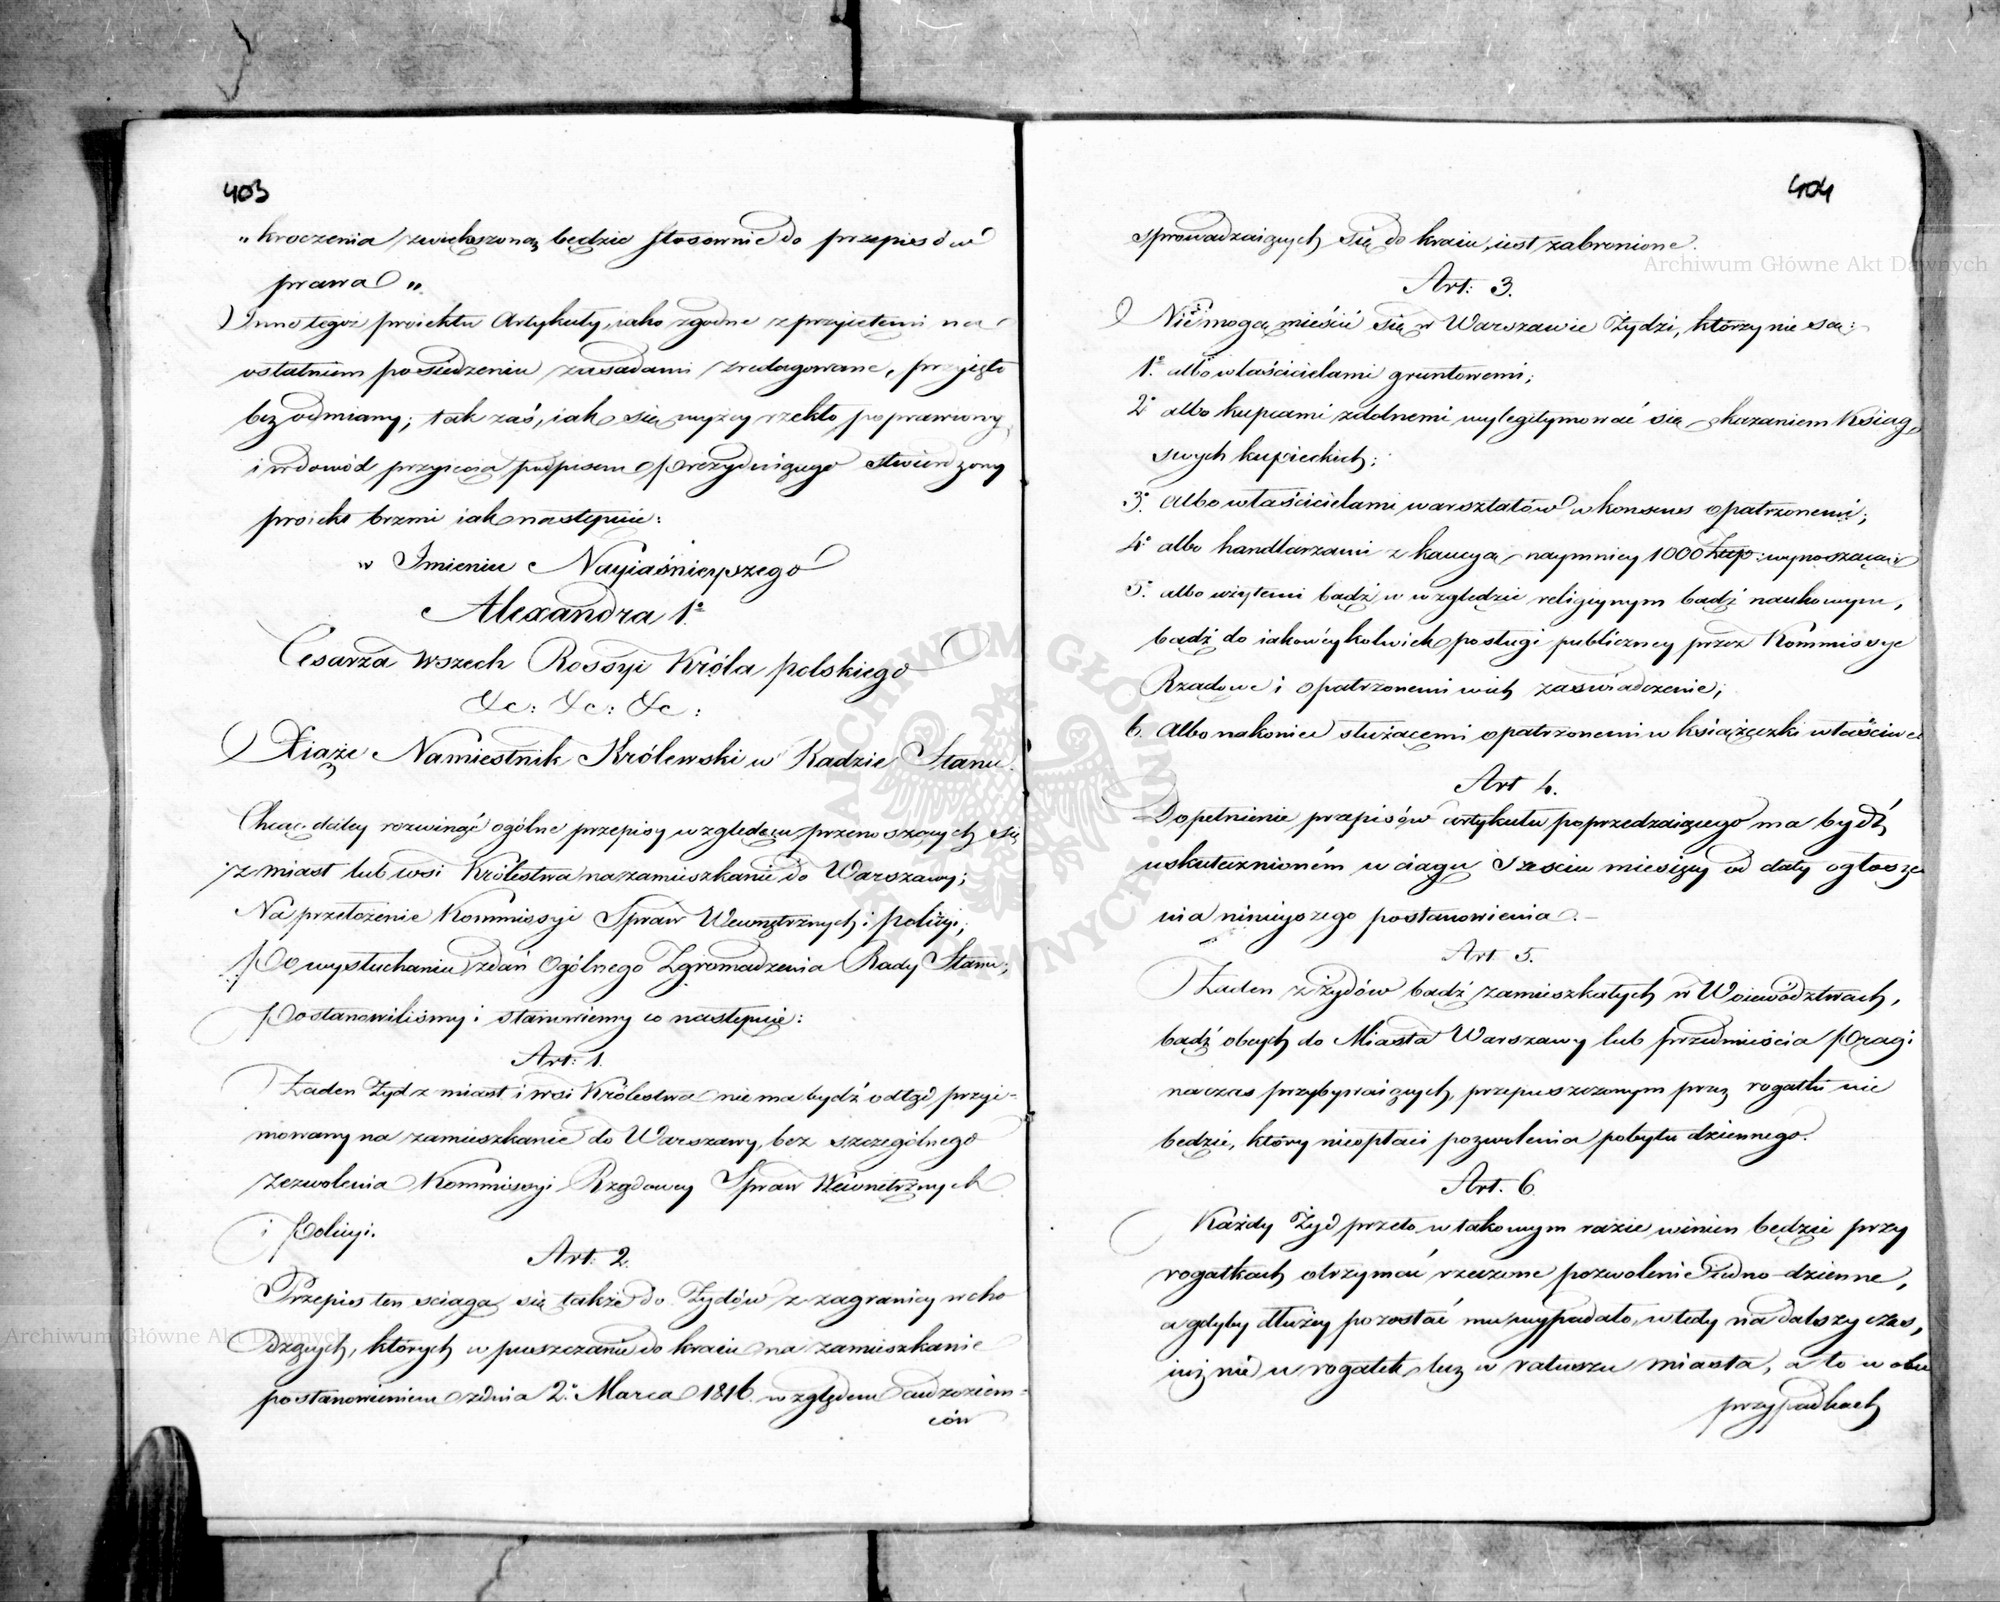 403
„ kroczenia zwiększoną będzie stosownie do przepisów
prawa „
Inne tegoż proiektu Artykuły, iako zgodne z przyiętemi na
ostatniem posiedzeniu zasadami zredagowane, przyięto
bez odmiany; tak zaś, iak się wyżey rzekło, poprawiony
i w dowód przyięcia podpisem Prezyduiącego stwierdzony
proiekt brzmi iak następuie:
„ Imieniu Nayiaśnieyszego
Alexandra 1º
Cesarza Wszech Rossyi Króla polskiego
&c: &c: &c:
Xiąże Namiestnik Królewski w Radzie Stanu.
Chcąc daley rozwinąć ogólne przepisy względem przenoszących się
z miast lub wsi Królestwa na zamieszkanie do Warszawy;
Na przełożenie Kommissyi Spraw Wewnętrznych i policyi;
Po wysłuchaniu zdań Ogólnego Zgromadzenia Rady Stanu;
Postanowiliśmy i stanowiemy co następuie:
Art: 1.
Żaden Żyd z miast i wsi Królestwa nie ma bydź odtąd przyi-
mowany na zamieszkanie do Warszawy, bez szczególnego
zezwolenia Kommissyi Rządowey Spraw Wewnętrznych
i Policyi.
Art: 2.
Przepis ten sciąga się także do Żydów z zagranicy wcho
dzących, których wpuszczanie do kraiu na zamieszkanie
postanowieniem z dnia 2º Marca 1816. względem cudzoziem-
ców
404
sprowadzaiących się do kraiu, iest zabronione.
Art: 3.
Nie mogą mieścić się w Warszawie Żydzi, którzy nie są:
1º albo właścicielami gruntowemi;
2º albo kupcami zdolnemi wylegitymować się okazaniem Ksiąg
swych kupieckich;
3º Albo właścicielami warsztatów w konsens opatrzonemi;
4º albo handlarzami z kaucyą naymniey 1000 złtp: wynoszącą;
5º albo użytemi bądź w względzie religiynym bądź naukowym,
bądź do iakowéykolwiek posługi publiczney przez Kommissye
Rządowe i opatrzonemi w ich zaświadczenie;
6. Albo nakoniec służącemi opatrzonemi w książeczki właściwe
Art 4.
Dopełnienie przepisów artykułu poprzedzaiącego ma bydź
uskutecznioném w ciągu sześciu miesięcy od daty ogłosze
nia ninieyszego postanowienia. -
Art 5.
Żaden z żydów bądź zamieszkałych w Woiewództwach,
bądź obcych do Miasta Warszawy lub przedmieścia Pragi
na czas przybywaiących, przepuszczonym przez rogatki nie
będzie, który nieopłaci pozwolenia pobytu dziennego.
Art. 6
Każdy Żyd przeto w takowym razie winien będzie przy
rogatkach otrzymać rzeczone pozwolenie iedno-dzienne,
a gdyby dłużey pozostać mu wypadało, wtedy na dalszy czas,
iuż nie u rogatek lecz w ratuszu miasta, a to w obu
przypadkach
Archiwum Główne Akt Dawnych
Archiwum Główne Akt Dawnych
ARCHIWUM GŁÓWNE AKT DAWNYCH